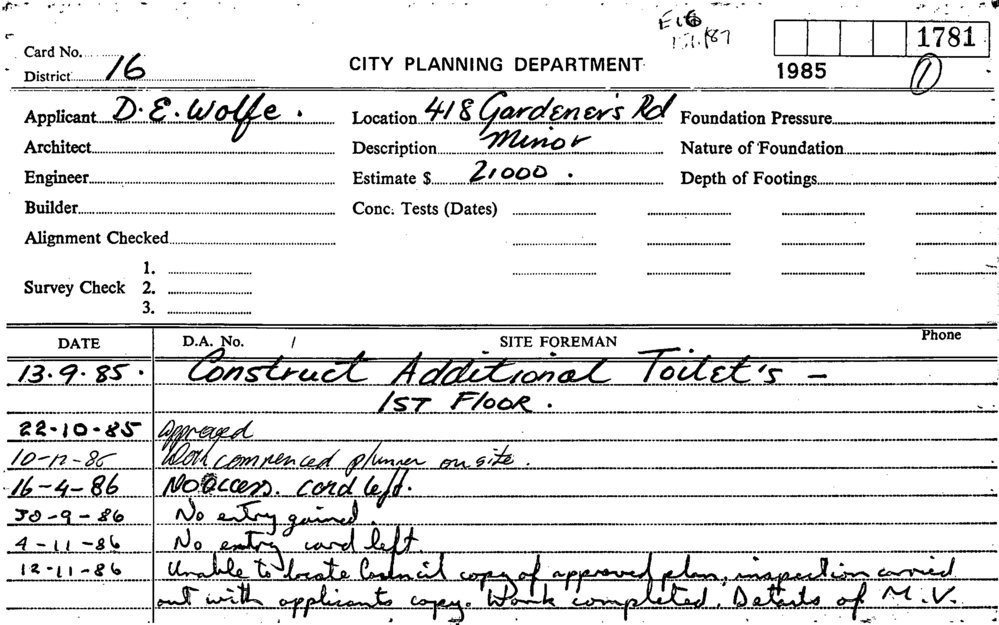 E16
1781
Card No.
District 16
CITY PLANNING DEPARTMENT
1985
1
Applicant D. E. Wolfe . Location 418 Gardener's Rd Foundation Pressure
Architect Description Minor Nature of Foundation
Engineer Estimate $ 21000 . Depth of Footings
Builder Conc. Tests (Dates)
Alignment Checked
1.
Survey Check 2.
3.
DATE D.A. No. / SITE FOREMAN Phone
13.9.85 . Construct Additional Toilet's –
1ST FLOOR .
22-10-85 Approved
10-12-85 Work commenced plumber on site .
16-4-86 No access. card left.
30-9-86 No entry gained.
4-11-86 No entry card left.
12-11-86 Unable to locate Council copy of approved plan, inspection carried
out with applicants copy. Work completed. Details of M.V.